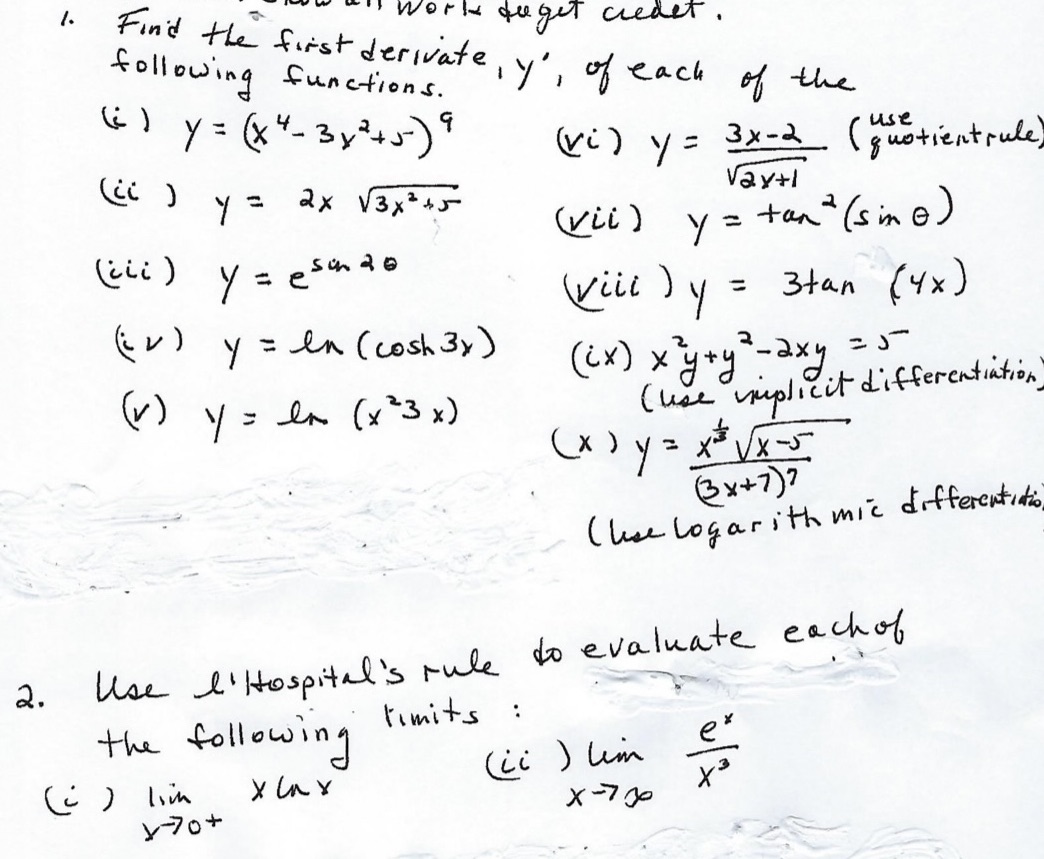 work to get credit.
1. Find the first derivate, y', of each of the
following functions.
(i) y = (x⁴- 3x²+5)⁹
(ii) y = 2x √(3x²+5)
(iii) y = e^(sin 2θ)
(iv) y = ln (cosh 3x)
(v) y = ln (x²3x)
(vi) y = (3x-2)/√(2x+1) (use quotient rule)
(vii) y = tan² (sin θ)
(viii) y = 3tan (4x)
(ix) x²y+y²-2xy = 5
(use implicit differentiation)
(x) y = x^(1/3) √(x-5) / (3x+7)⁷
(Use logarithmic differentiatio
2. Use l'Hospital's rule to evaluate each of
the following limits :
(i) lim x→0+ x ln x
(ii) lim x→∞ e^x/x³